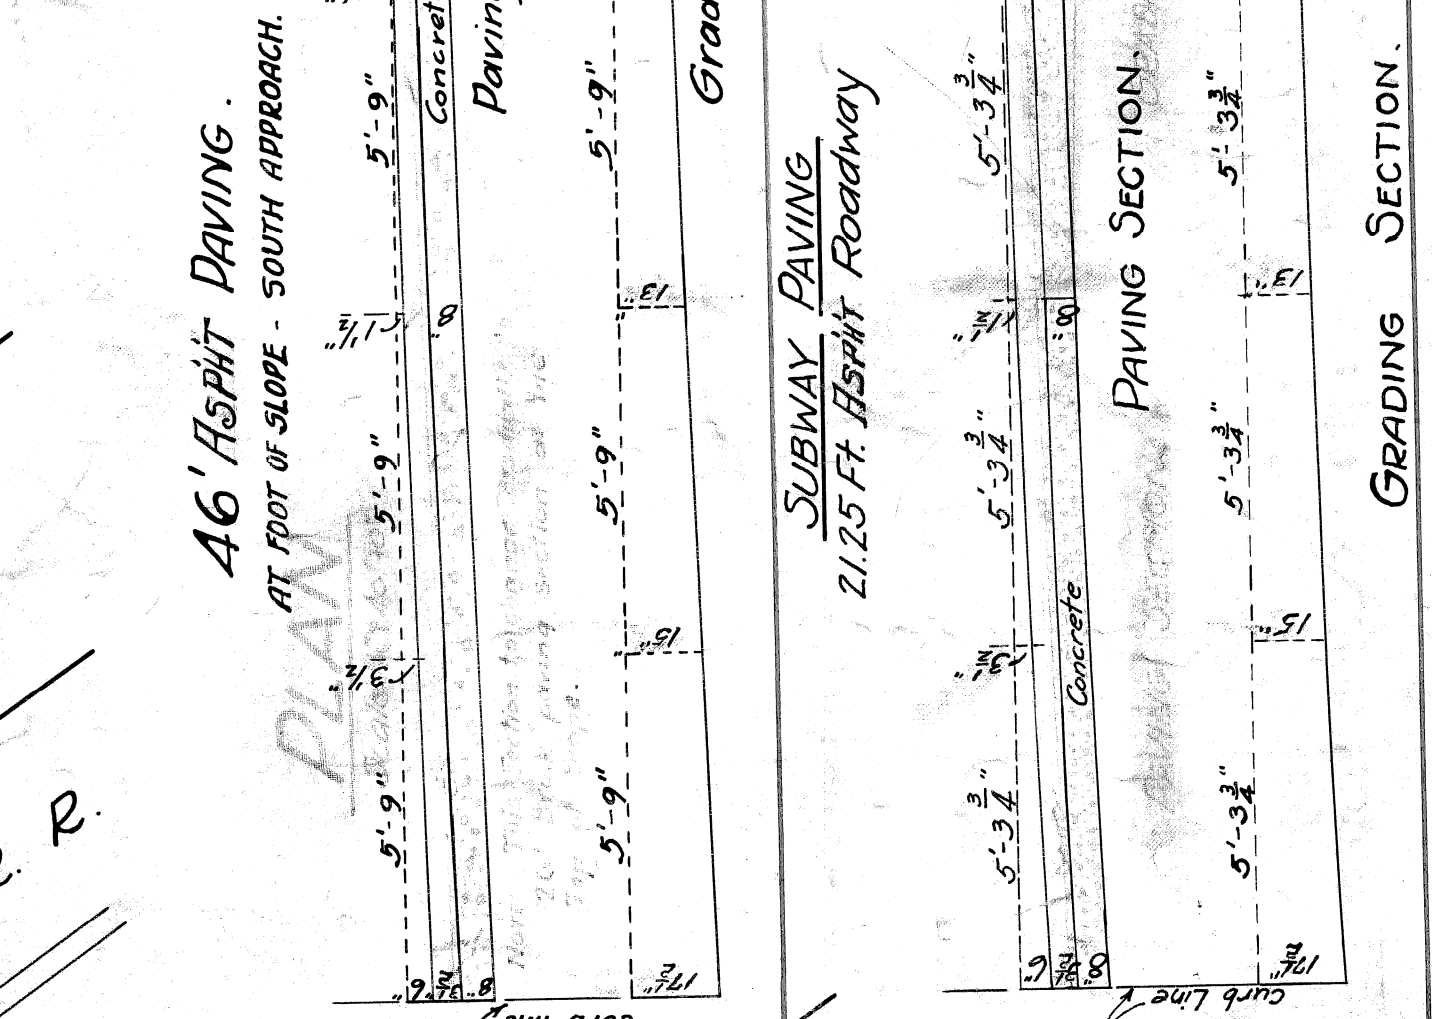 46' ASPH'T PAVING.
AT FOOT OF SLOPE - SOUTH APPROACH.
PLAN
5'-9" 5'-9" 5'-9"
3½" 1½"
6" 3½" 8" 8" Concret
Pavin
5'-9" 5'-9" 5'-9"
17½" 15" 13"
Grad
R.
SUBWAY PAVING
21.25 Ft. ASPH'T Roadway
5'-3¾" 5'-3¾" 5'-3¾"
3½" 1½"
6" 3½" 8" Concrete 8"
PAVING SECTION.
5'-3¾" 5'-3¾" 5'-3¾"
17½" 15" 13"
Curb Line
GRADING SECTION.